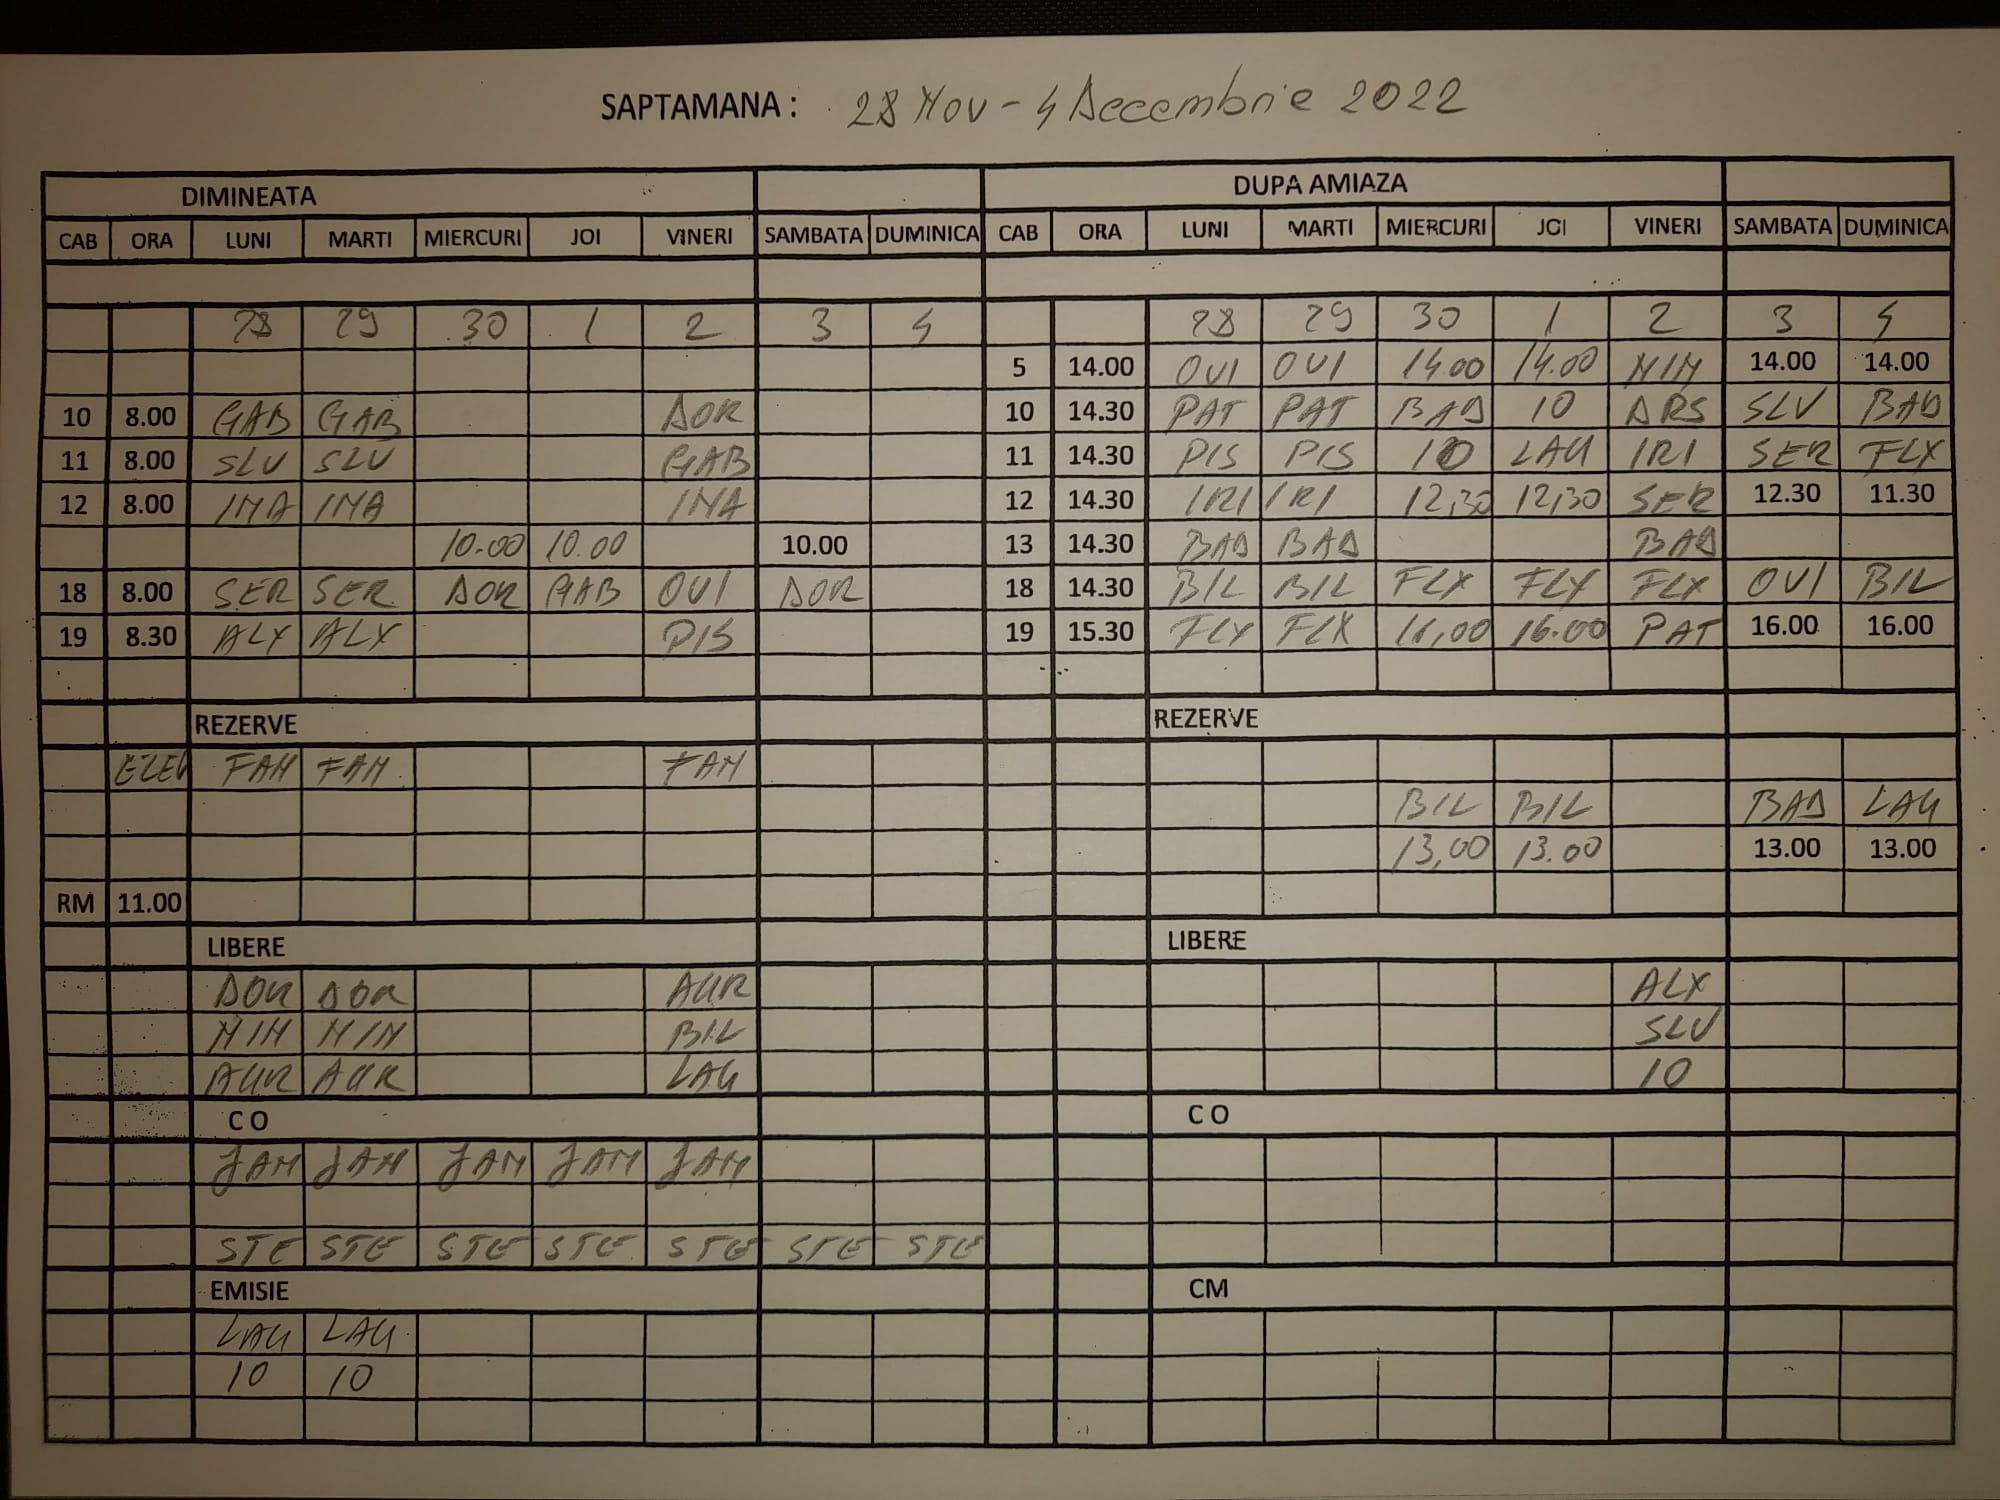 SAPTAMANA : 28 Nov - 4 Decembrie 2022
DIMINEATA DUPA AMIAZA
CAB ORA LUNI MARTI MIERCURI JOI VINERI SAMBATA DUMINICA CAB ORA LUNI MARTI MIERCURI JOI VINERI SAMBATA DUMINICA
28 29 30 1 2 3 4 28 29 30 1 2 3 4
5 14.00 OVI OVI 14.00 14.00 MIM 14.00 14.00
10 8.00 GAB GAB DOR 10 14.30 PAT PAT BAD 10 DRS SLV BAD
11 8.00 SLV SLV GAB 11 14.30 PIS PIS 10 LAU IRI SER FLX
12 8.00 INA INA INA 12 14.30 IRI IRI 12,30 12,30 SER 12.30 11.30
10.00 10.00 10.00 13 14.30 BAD BAD BAD
18 8.00 SER SER DOR GAB OVI DOR 18 14.30 BIL BIL FLX FLX FLX OVI BIL
19 8.30 ALX ALX PIS 19 15.30 FLX FLX 16.00 PAT 16.00 16.00
REZERVE REZERVE
FAM FAM FAM
BIL BIL BAD LAU
13,00 13.00 13.00 13.00
RM 11.00
LIBERE LIBERE
DOR DOR AUR ALX
MIM MIM BIL SLV
AUR AUR LAU 10
C O C O
JAM JAM JAM JAM JAM
STE STE STE STE STE STE STE
EMISIE CM
LAU LAU
10 10